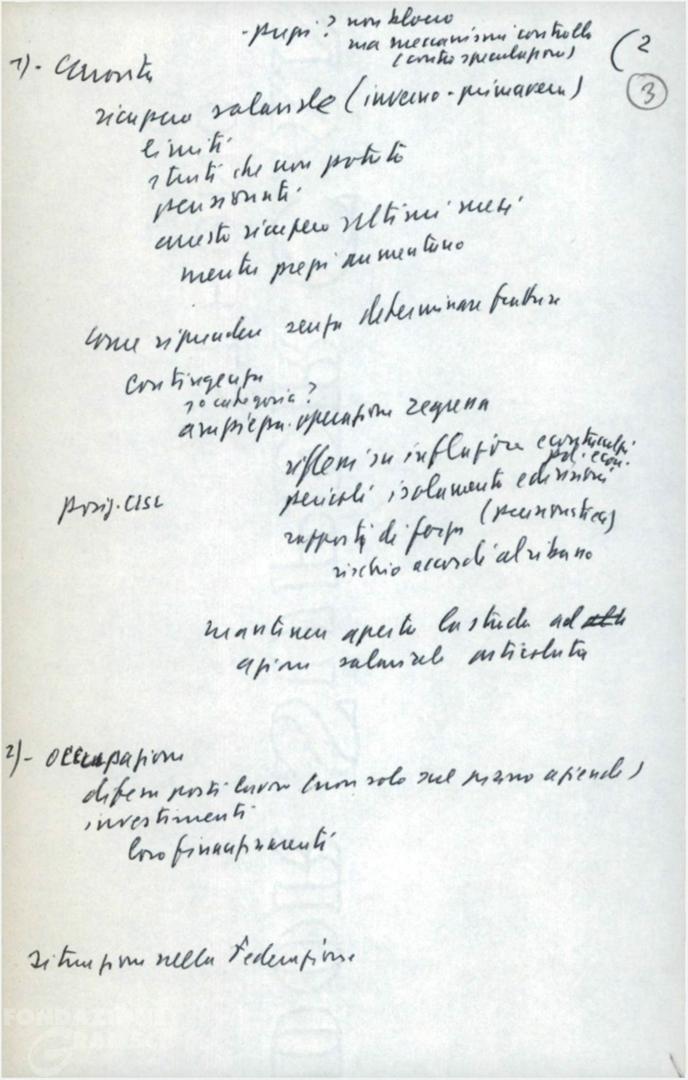 - prezzi? non blocco
ma meccanismi controllo
(contro speculazione)
(2
3
1) - Carovita
recupero salariale (inverno-primavera)
limiti
strati che non potuto
pensionati
questo recupero ultimi mesi
mentre prezzi aumentano
come riprendere senza determinare fratture
contingenza
1° categoria?
ampiezza operazione
riflessi su inflazione
pol. econ.
posiz. CISL
pericoli isolamento e divisioni
rapporti di forza
rischio accordi al ribasso
mantenere aperta la strada ad
azione salariale articolata
2) - Occupazione
difesa posti lavoro (non solo sul piano aziende)
investimenti
loro finanziamenti
situazione nella Federazione
FONDAZIONE
GRAMSCI